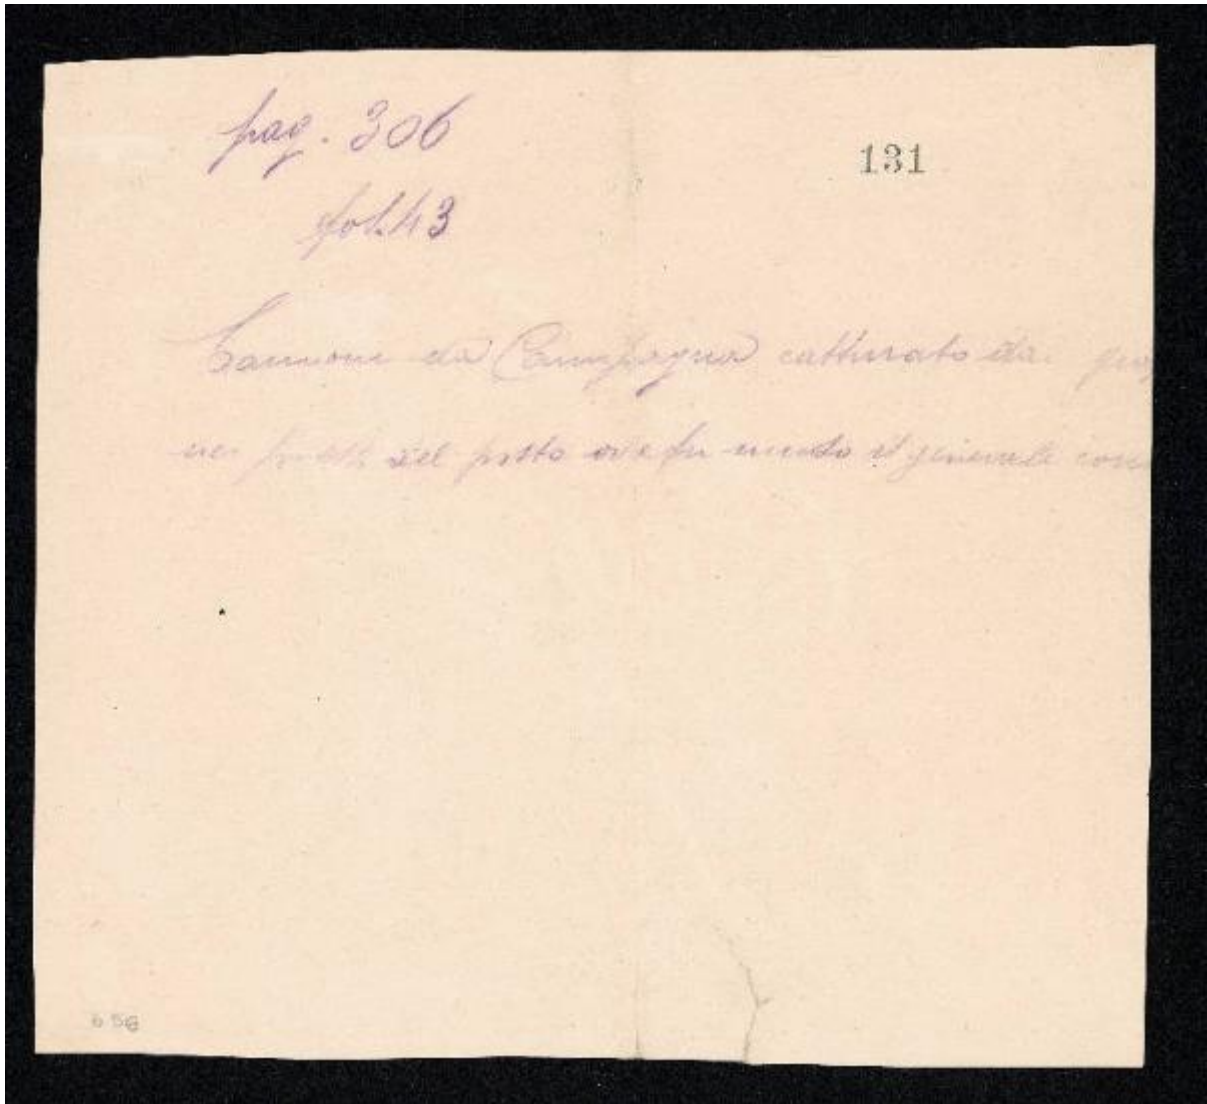 pag. 306
131
fol. 43
Cannone da Campagna catturato da
nei pressi del posto ove fu il generale
656